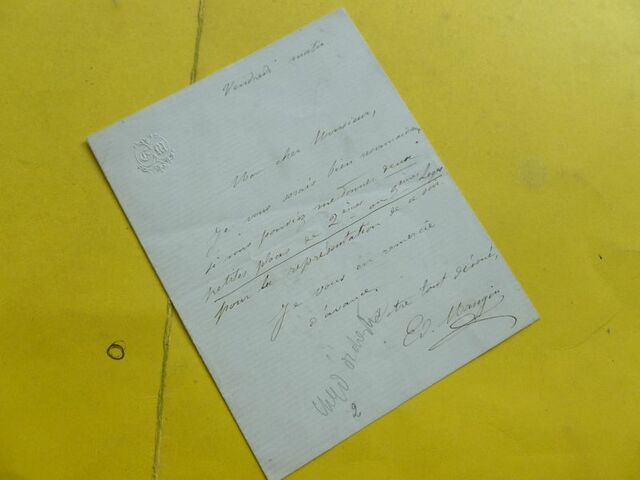 Vendredi matin
Mon cher Monsieur,
Je vous serais bien reconnaissant
si vous pouviez me donner deux
petites places de 2èmes ou 3èmes Loges
pour la représentation de ce soir.
Je vous en remercie
d'avance,
Votre tout dévoué,
Ed. Mangin
chef d'orchestre
2